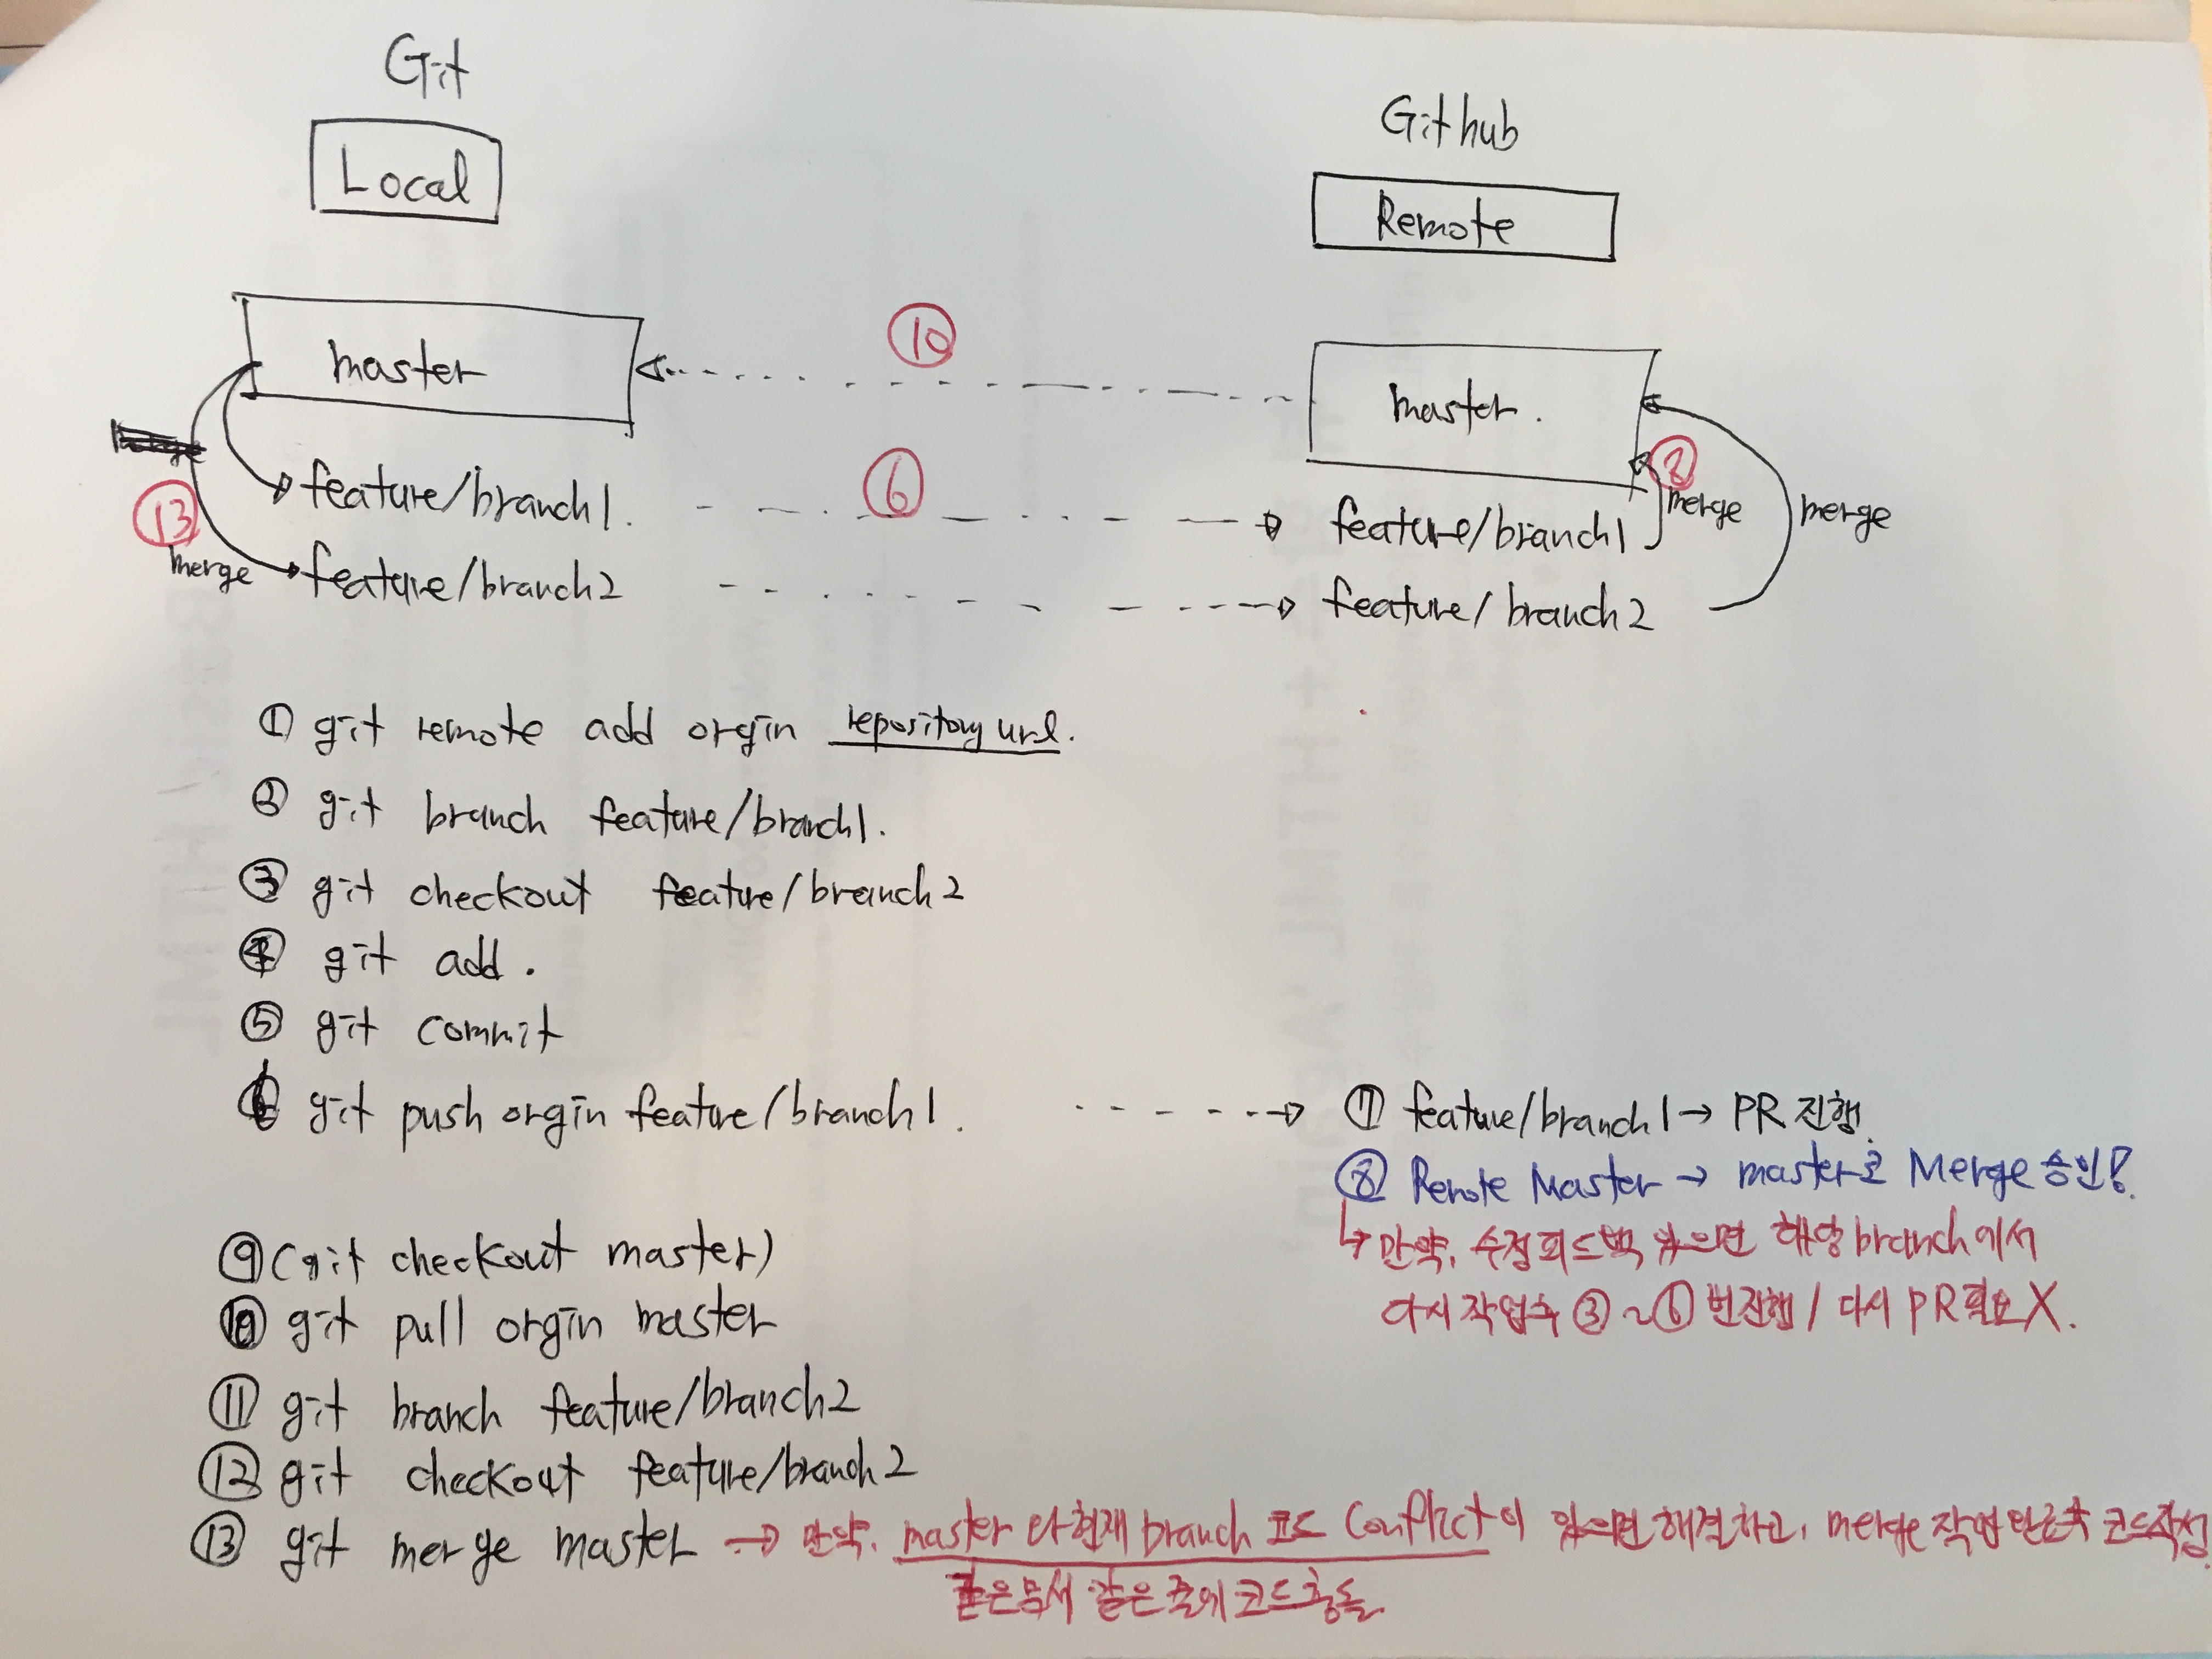 Git
Github
Local
Remote
⑩
master
master.
⑧
merge
merge
⑥
feature/branch1.
feature/branch1
⑬
merge
feature/branch2
feature/branch2
① git remote add orgin repository url.
② git branch feature/branch1.
③ git checkout feature/branch2
④ git add .
⑤ git commit
⑥ git push orgin feature/branch1.
⑦ feature/branch1 → PR 진행.
⑧ Remote Master → master로 Merge 승인!
↳ 만약, 수정 피드백 있으면 해당 branch에서
다시 작업후 ③~⑥ 번진행 / 다시 PR필요X.
⑨ (git checkout master)
⑩ git pull orgin master
⑪ git branch feature/branch2
⑫ git checkout feature/branch2
⑬ git merge master → 만약, master 와 현재 branch 코드 Conflict이 있으면 해결하고, merge 작업 완료후 코드작성.
같은문서 같은 줄에 코드충돌